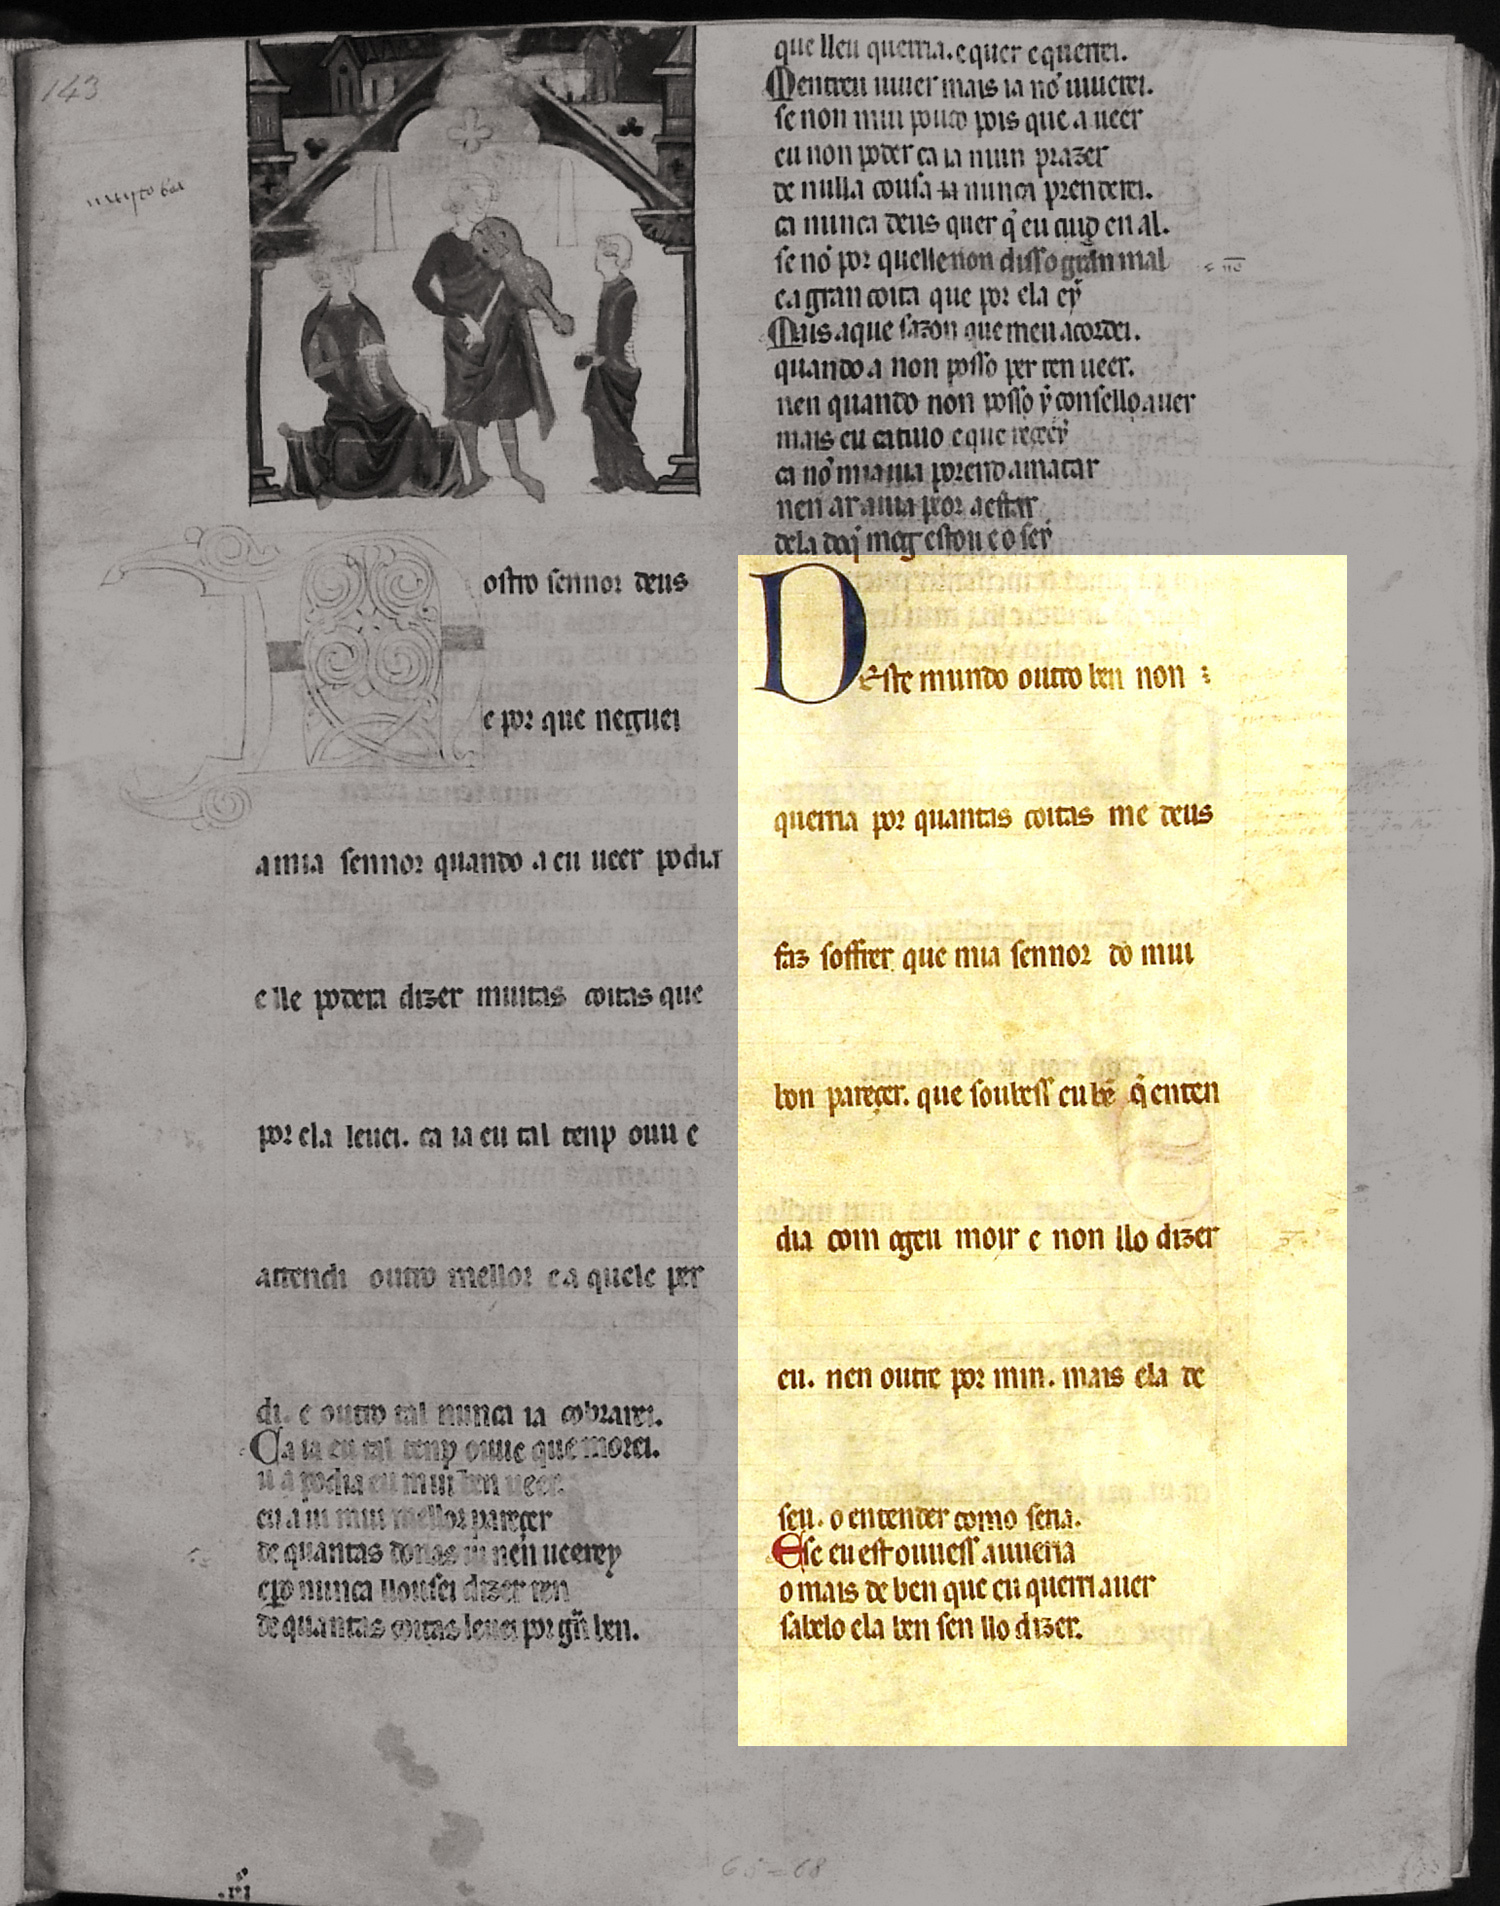 143
ostro sennor deus
e por que neguei
a mia sennor quando a eu ueer podia
e lle podera dizer muitas coitas que
por ela leuei. ca ia eu tal tenp ouu e
attendi outro mellor e a quele per
di. e outro tal nunca ia cobrarei.
Ca ia eu tal tenp ouue que morei.
u a podia eu mui ben ueer.
eu a ui mui mellor pareçer
de quantas donas ui nen ueerey
epero nunca llousei dizer ren
de quantas coitas leuei por gñ ben.
que lleu querria. e quer e querrei.
Mentreu uiuer mais ia nõ uiuerei.
se non mui pouco pois que a ueer
eu non poder ca ia niun prazer
de nulla cousa ia nunca prenderei.
ca nunca deus quer q̄ eu cuid en al.
se nõ por quellenon dissograñ mal
e a gran coita que por ela ey
Mais aque sazon que meu acordei.
quando a non posso per ren ueer.
nen quando non posso y consello auer
mais eu catiuo e que
ca nõ mauia porend amatar
nen ar auia peor a estar
dela doq̄ mog estou e o sey
DEste mundo outro ben non
querria por quantas coitas me deus
faz soffrer que mia sennor do mui
bon pareçer. que soubess eu bẽ q̄ enten
dia com ogeu moir e non llo dizer
eu. nen outre por min. mais ela de
seu. o entender como seria.
E se eu est ouuess auueria
o mais de ben que eu querri auer
sabelo ela ben sen llo dizer.
65-68